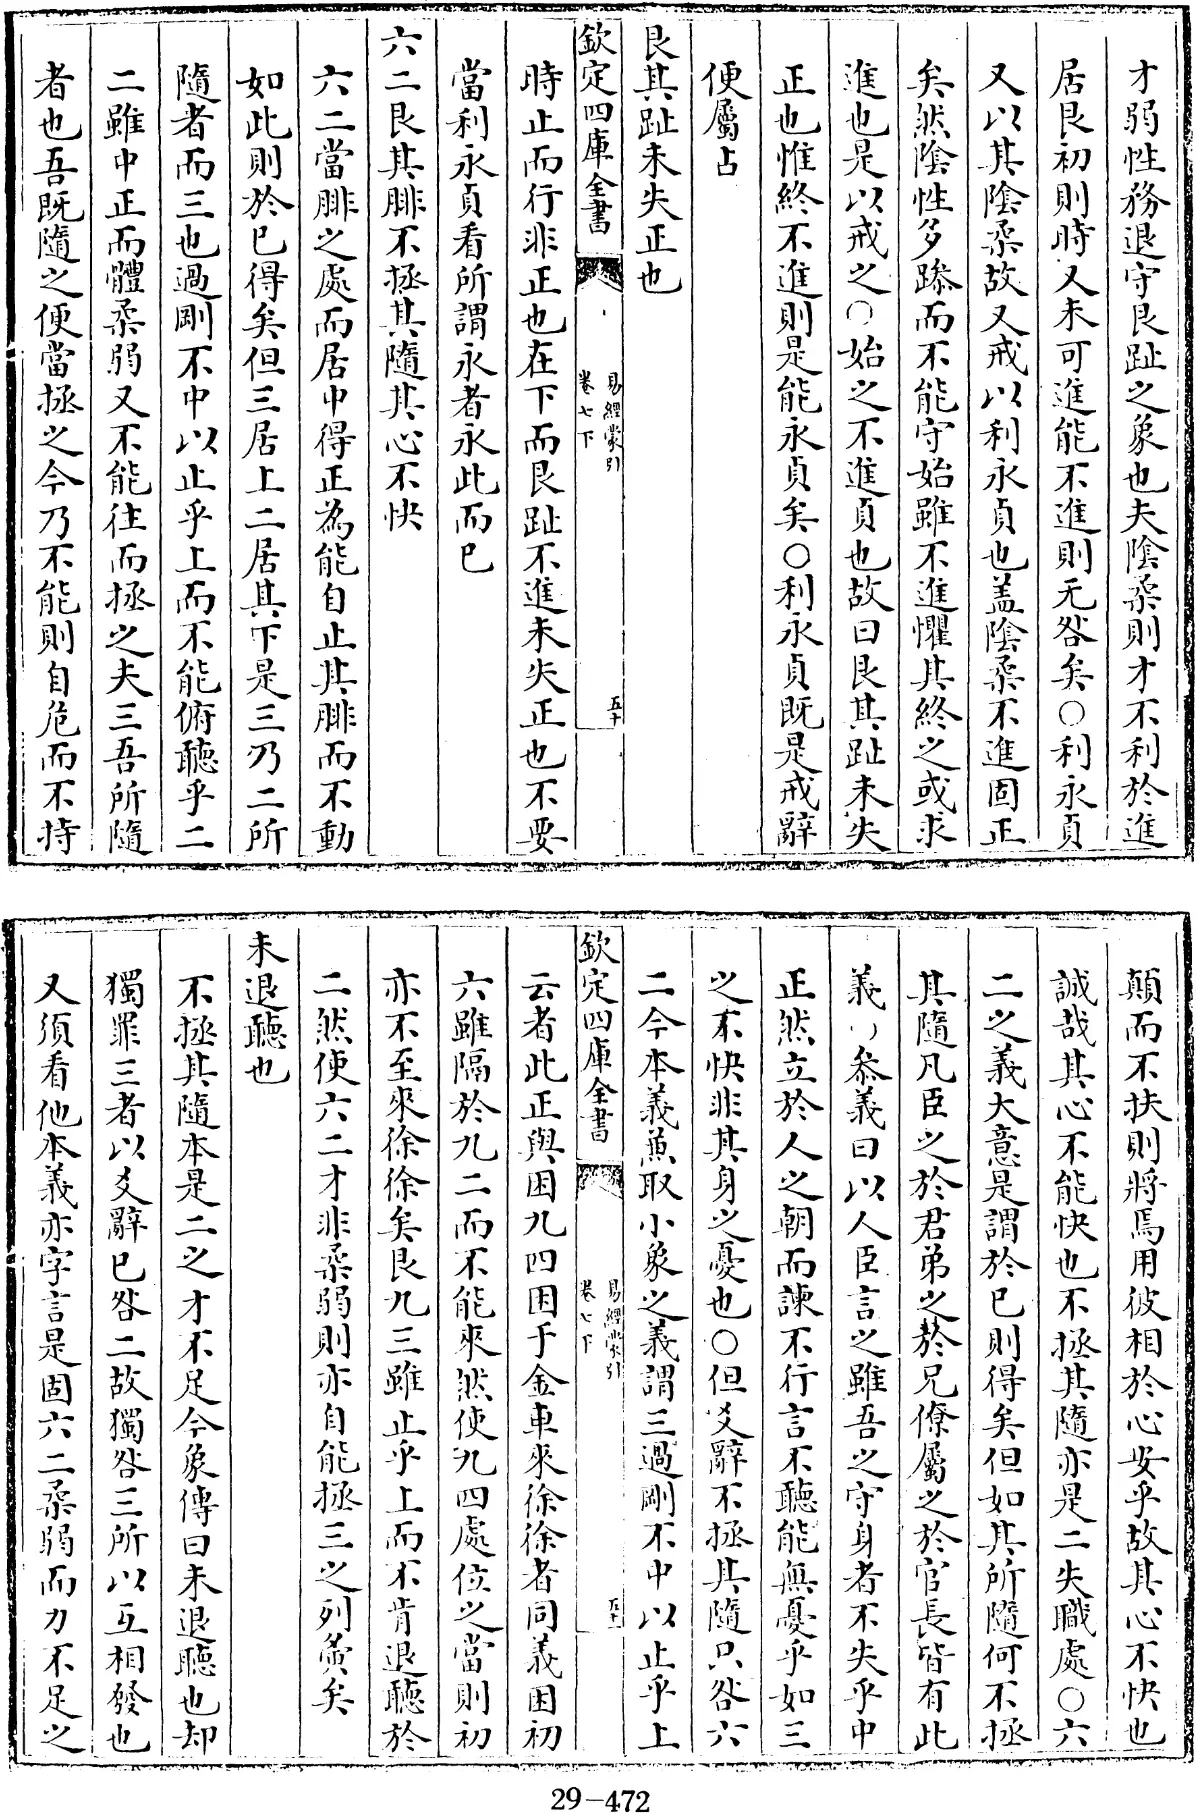 才弱性務退守艮趾之象也夫陰柔則才不利於進
居艮初則時又未可進能不進則无咎矣○利永貞
又以其陰柔故又戒以利永貞也盖陰柔不進固正
矣然陰性多躁而不能守始雖不進懼其終之或求
進也是以戒之○始之不進貞也故曰艮其趾未失
正也惟終不進則是能永貞矣○利永貞既是戒辭
便屬占
艮其趾未失正也
欽定四庫全書
易經蒙引
卷七下
五十
時止而行非正也在下而艮趾不進未失正也不要
當利永貞看所謂永者永此而已
六二艮其腓不拯其隨其心不快
六二當腓之處而居中得正為能自止其腓而不動
如此則於已得矣但三居上二居其下是三乃二所
隨者而三也過剛不中以止乎上而不能俯聽乎二
二雖中正而體柔弱又不能往而拯之夫三吾所隨
者也吾既隨之便當拯之今乃不能則自危而不持
顛而不扶則將焉用彼相於心安乎故其心不快也
誠哉其心不能快也不拯其隨亦是二失職處○六
二之義大意是謂於已則得矣但如其所隨何不拯
其隨凡臣之於君弟之於兄僚屬之於官長皆有此
義○叅義曰以人臣言之雖吾之守身者不失乎中
正然立於人之朝而諫不行言不聽能無憂乎如三
之不快非其身之憂也○但爻辭不拯其隨只咎六
二今本義兼取小象之義謂三過剛不中以止乎上
欽定四庫全書
易經蒙引
卷七下
五十一
云者此正與困九四困于金車來徐徐者同義困初
六雖隔於九二而不能來然使九四處位之當則初
亦不至來徐徐矣艮九三雖止乎上而不肯退聽於
二然使六二才非柔弱則亦自能拯三之列夤矣
未退聽也
不拯其隨本是二之才不足今象傳曰未退聽也却
獨罪三者以爻辭已咎二故獨咎三所以互相發也
又須看他本義亦字言是固六二柔弱而力不足之
29-472